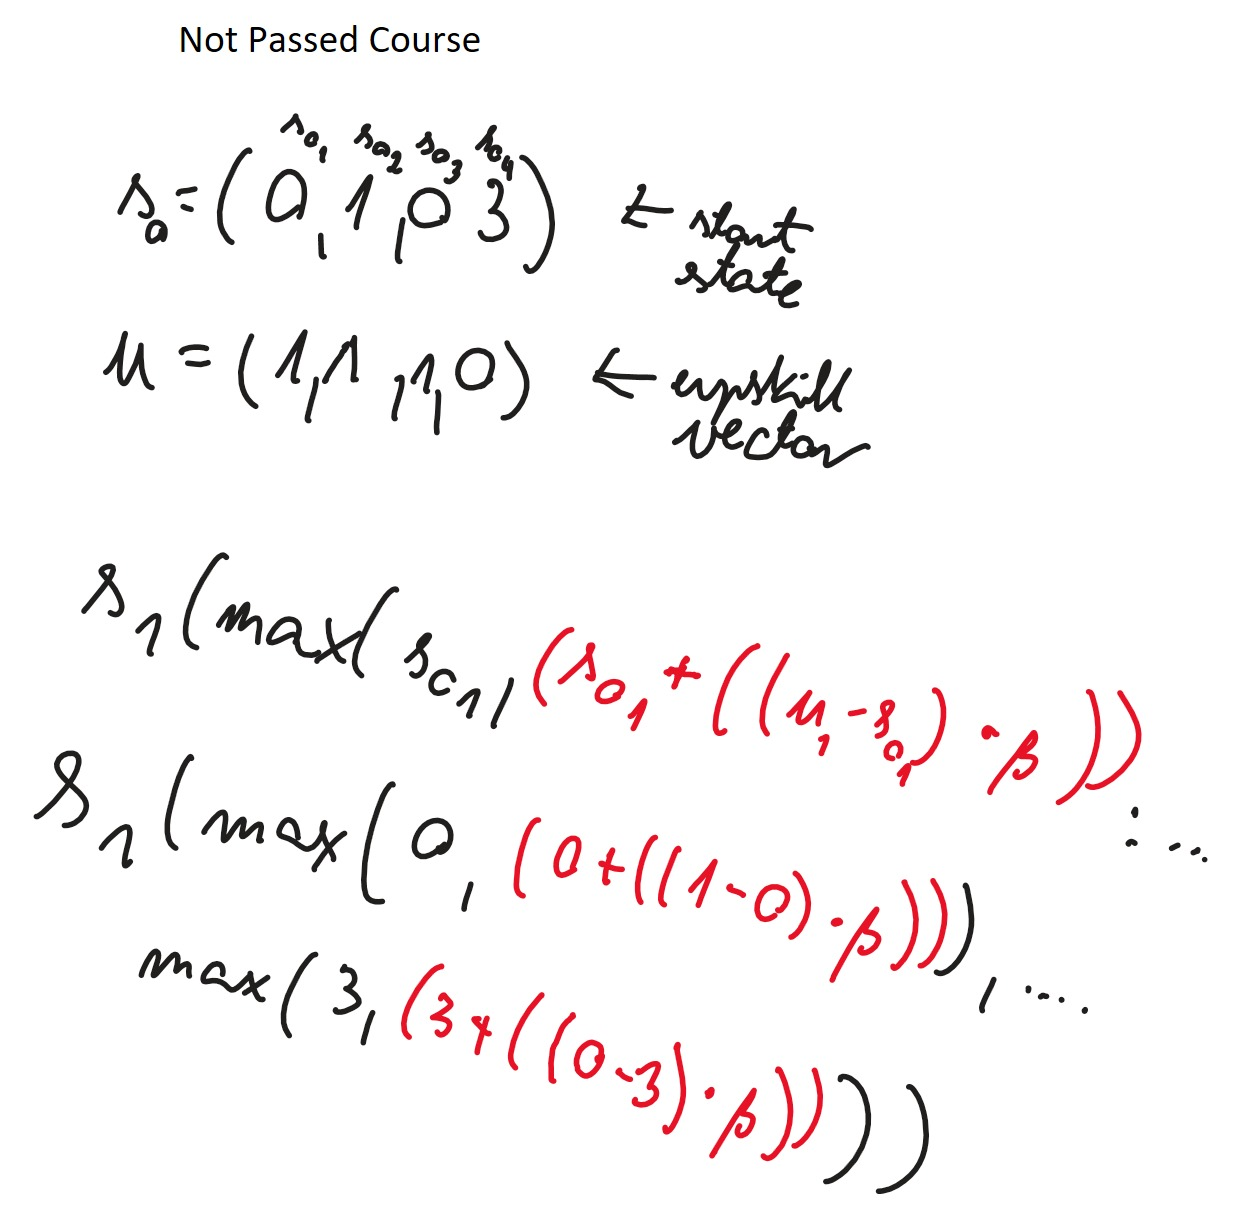 Not Passed Course
s₀₁ s₀₂ s₀₃ s₀₄
s₀ = (0, 1, 0 3) ← start
state
u = (1, 1, 1, 0) ← upskill
vector
s₁ (max(s₀₁, (s₀₁ + ((u₁ - s₀₁) · β))
: ....
s₁ (max(0, (0 + ((1 - 0) · β))), ....
max(3, (3 + ((0 - 3) · β))))